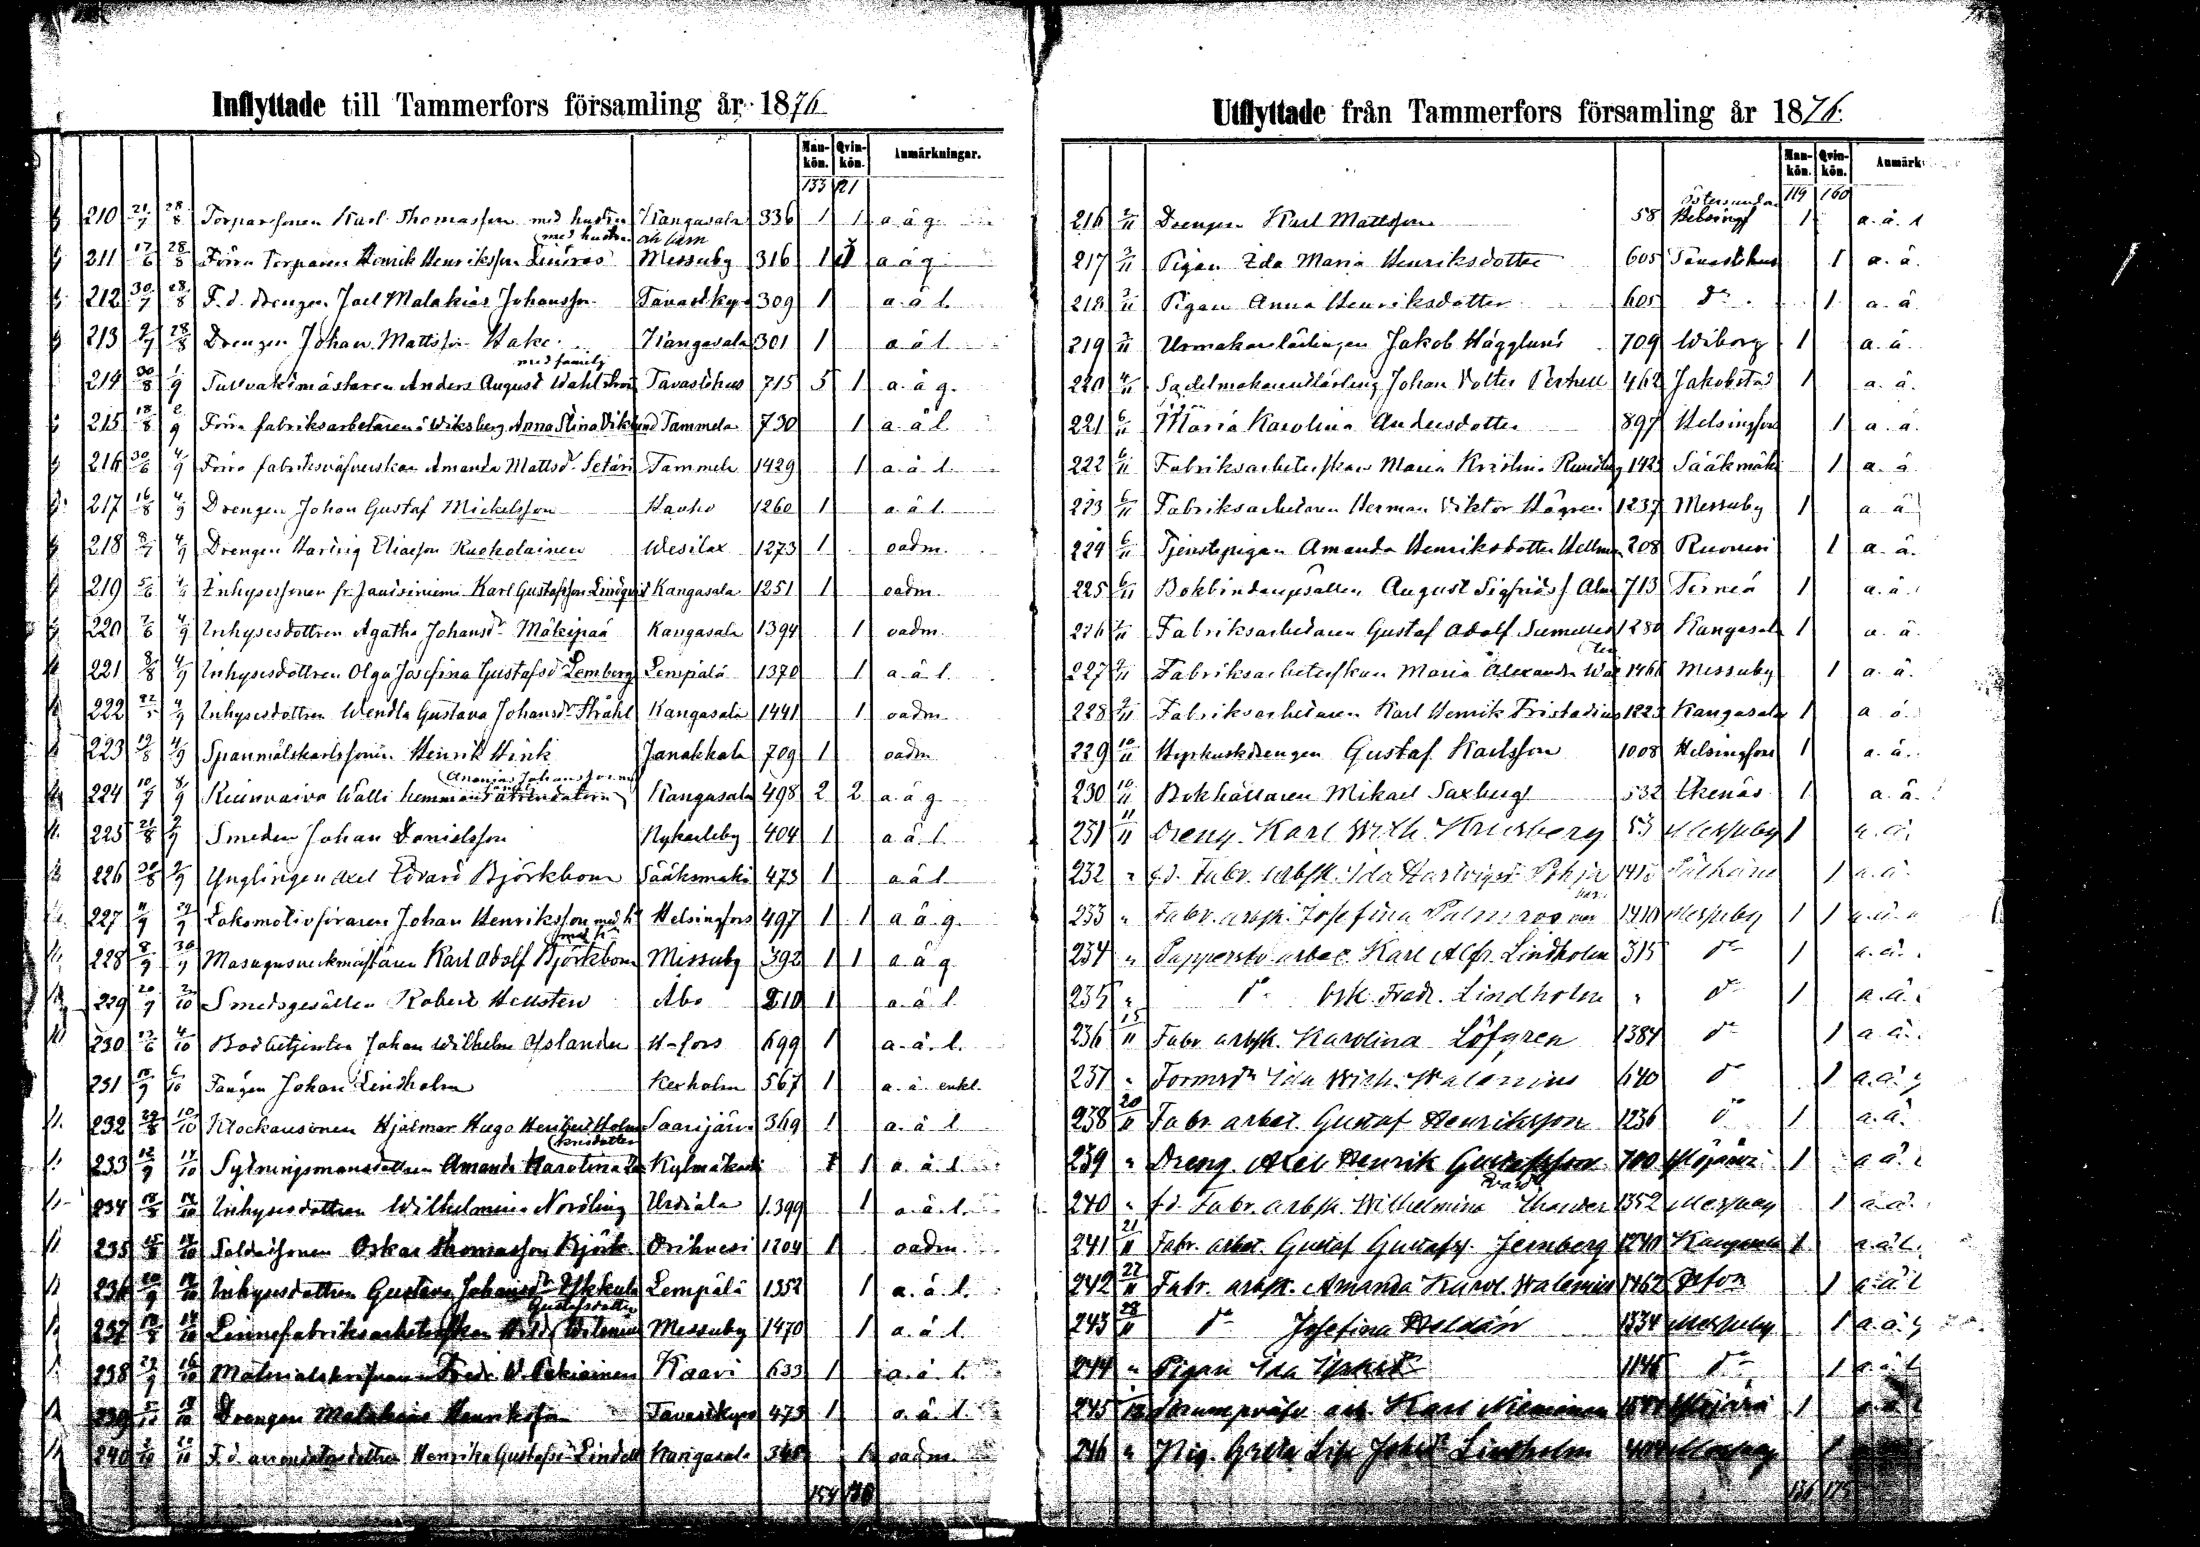 Inflyttade till Tammerfors församling år 1876
Mankön. Qvinkön. Anmärkningar.
133 121
210 21/7 28/8 Torparsonen Karl Thomasson med hustru Kangasala 336 1 1 a ä g
med hustru och barn
211 17/6 28/8 Förra Torparen Henrik Henriksson Messuby 316 1 a ä g
212 30/7 28/8 F. d. drengen Joel Malakias Johansson Tavastkyro 309 1 a ä l.
213 9/7 28/8 Drengen Johan Mattsson Hake Kangasala 301 1 a ä l
med familj
214 30/8 1/9 Tullvaktmästaren Anders August Wahlström Tavastehus 715 5 1 a. ä g.
215 18/8 2/9 Förra fabriksarbeterskan å Wiksberg Anna Stina Viklund Tammela 730 1 a. ä l
216 30/6 4/9 Förra fabriksväfverskan Amanda Mattsdr Setäri Tammela 1429 1 a. ä l.
217 16/8 4/9 Drengen Johan Gustaf Mickelsson Hauho 1260 1 a. ä l.
218 8/7 4/9 Drengen Hartvig Eliasson Ruokolainen Wesilax 1273 1 oadm.
219 5/6 4/9 Inhysessonen fr. Karl Gustafsson Lindqvist Kangasala 1251 1 oadm.
220 7/6 4/9 Inhysesdottren Agatha Johansdr Mäkipää Kangasala 1394 1 oadm.
221 8/8 4/9 Inhysesdottren Olga Josefina Gustafsdr Lemberg Lempälä 1370 1 a. ä l.
222 4/9 Inhysesdottren Wendla Gustava Johansdr Ståhl Kangasala 1441 1 oadm.
223 19/8 4/9 Spanmålskarlssonen Henrik Hink Janakkala 709 1 oadm
Ananias Johansson med familj
224 10/7 8/9 Walli hemmans Kangasala 498 2 2 a. ä g
225 21/8 Smeden Johan Danielsson Nykarleby 404 1 a. ä. l.
226 30/8 Ynglingen Axel Edvard Björkbom Sääksmäki 473 1 a ä l
227 Lokomotivföraren Johan Henriksson med hu Helsingfors 497 1 1 a. ä. g.
med hu
228 8/9 Masugnsverkmästaren Karl Adolf Björkbom Messuby 392 1 1 a. ä g
229 20/9 2/10 Smedsgesällen Robert Hellsten Åbo 210 1 a. ä l.
230 4/10 Bodbetjenten Johan Wilhelm Åslander H-fors 699 1 a. ä. l.
231 6/10 Fången Johan Lindholm Kexholm 567 1 a. ä. enkl.
232 29/8 10/10 Klockaresonen Hjalmar Hugo Heribert Holm Saarijärvi 369 1 a. ä l
233 12/9 14/10 Sytningsmansdottren Amanda Karolina Kylmäkoski 1 a. ä. l
234 18/8 14/10 Inhysesdottren Wilhelmina Nordling Urdiala 1399 1 a. ä. l.
235 14/10 Soldatsonen Oskar Thomasson Björk Orihvesi 1204 1 oadm.
236 20/9 14/10 Inhysesdottren Gustava Johansdr Lempälä 1352 1 a. ä l.
Gustafsdotter
237 14/10 Linnefabriksarbeterskan Messuby 1470 1 a. ä l.
238 29/9 16/10 Fredr. W. Kaavi 633 1 a. ä l.
239 Drengen Malakias Henriksson Tavastkyro 473 1 a. ä. l.
240 F. d. arrendatorsdottren Henrika Gustafsdr Lindell Kangasala 1 oadm.
154
Utflyttade från Tammerfors församling år 1876.
Mankön. Qvinkön. Anmärk
119 160
216 2/11 Drengen Karl Mattsson 58 Östersundom Helsingf 1 a. ä. l
217 3/11 Pigan Ida Maria Henriksdotter 605 Tavastehus 1 a. ä.
218 3/11 Pigan Anna Henriksdotter 605 do 1 a. ä
219 3/11 Urmakarelärlingen Jakob Hägglund 709 Wiborg 1 a. ä.
220 4/11 Sadelmakarelärling Johan Volter Pertell 462 Jakobstad 1 a. ä.
221 6/11 Maria Karolina Andersdotter 897 Helsingfors 1 a. ä.
222 6/11 Fabriksarbeterskan Maria Kristina Rundberg 1425 Sääksmäki 1 a. ä
223 6/11 Fabriksarbetaren Herman Viktor Hägren 1237 Messuby 1 a ä
224 6/11 Tjenstepigan Amanda Henriksdotter Hellman 208 Ruovesi 1 a. ä.
225 6/11 Bokbindaregesällen August Sigfrids. Alm 713 Torneå 1 a. ä.
226 Fabriksarbetaren Gustaf Adolf 1280 Kangasala 1 a. ä.
227 Fabriksarbeterskan Maria Alexandra 1466 Messuby 1 a. ä.
228 Fabriksarbetaren Karl Henrik Fristadius 1223 Kangasala 1 a ä.
229 10/11 Hyrkuskdrengen Gustaf Karlsson 1008 Helsingfors 1 a. ä.
230 10/11 Bokhållaren Mikael Saxberg 532 Ekenäs 1 a. ä.
231 11/11 Dreng. Karl Wilh. Krusberg 53 Messuby 1 a. ä.
232 " f.d. Fabr. arbsk. Ida Hartvigsdr Pohja Pälkäne 1 a. ä.
233 " Fabr. arbsk. Josefina Palmroos 1410 Messuby 1 1 a. ä.
234 " Papperstv. arbet. Karl Alfr. Lindholm 315 do 1 a. ä.
235 " do Osk. Fredr. Lindholm " do 1 a. ä.
236 15/11 Fabr. arbsk. Karolina Löfgren 1384 do 1 a. ä.
237 " Ida Wilh. Walenius 640 do 1 a. ä. g
238 20/11 Fabr. arbet. Gustaf Henriksson 1236 do 1 a. ä.
239 " Dreng. Axel Henrik Gustafsson 700 Ylöjärvi 1 a ä. l
240 " f.d. Fabr. arbsk. Wilhelmina 1352 Messuby 1 a ä.
241 21/11 Fabr. arbet. Gustaf Gustafss. Jernberg 1240 Kangasala 1 a. ä l.
242 22/11 Fabr. arbsk. Amanda Karol. Walenius 1462 1 a. ä l
243 28/11 do Josefina 1334 Messuby 1 a. ä. g
244 " Pigan Ida 1145 do 1 a. ä l
245 Karl Nieminen Ylöjärvi 1
246 " Pig. Greta Lisa Johsdr Lindholm Messuby 1
136 175